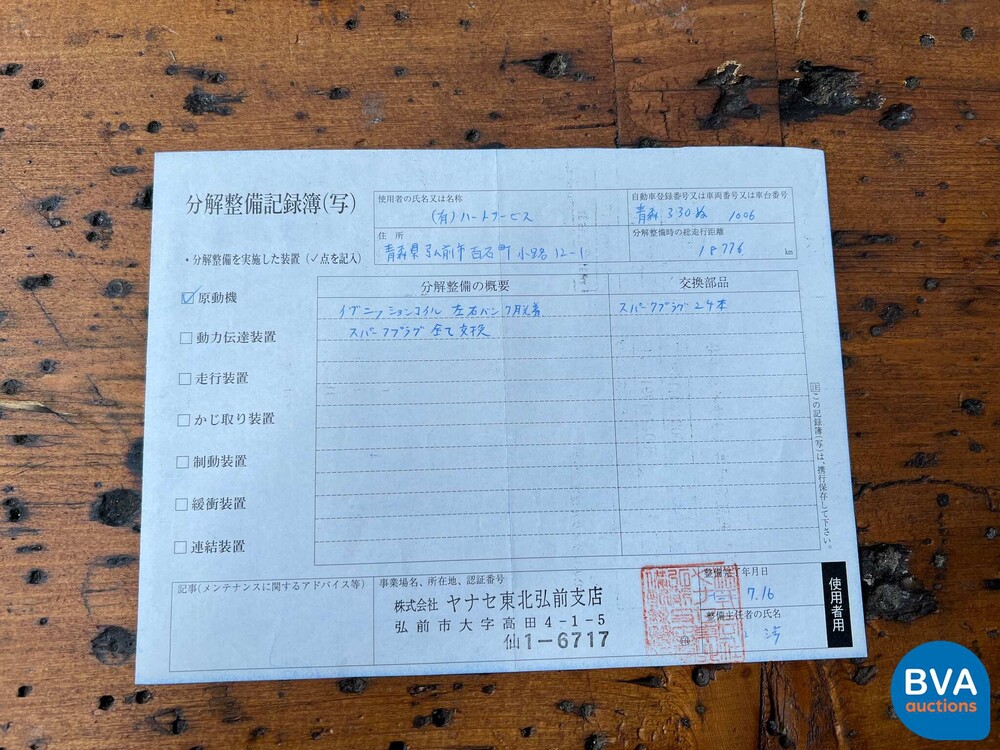 分解整備記録簿(写)
使用者の氏名又は名称
(有)ハートサービス
自動車登録番号又は車両番号又は車台番号
青森 330 ぬ 1006
住所
青森県弘前市百石町小路12-1
分解整備時の総走行距離
18776 km
・分解整備を実施した装置 (✓点を記入)
分解整備の概要
交換部品
☑ 原動機
イグニッションコイル 左右バンク脱着
スパークプラグ 24本
スパークプラグ 全て交換
□ 動力伝達装置
□ 走行装置
□ かじ取り装置
□ 制動装置
□ 緩衝装置
□ 連結装置
注 この記録簿(写)は、携行保存して下さい。
記事(メンテナンスに関するアドバイス等)
事業場名、所在地、認証番号
株式会社 ヤナセ東北弘前支店
弘前市大字高田4-1-5
仙1-6717
年月日
7.16
整備主任者の氏名
使用者用
BVA
auctions